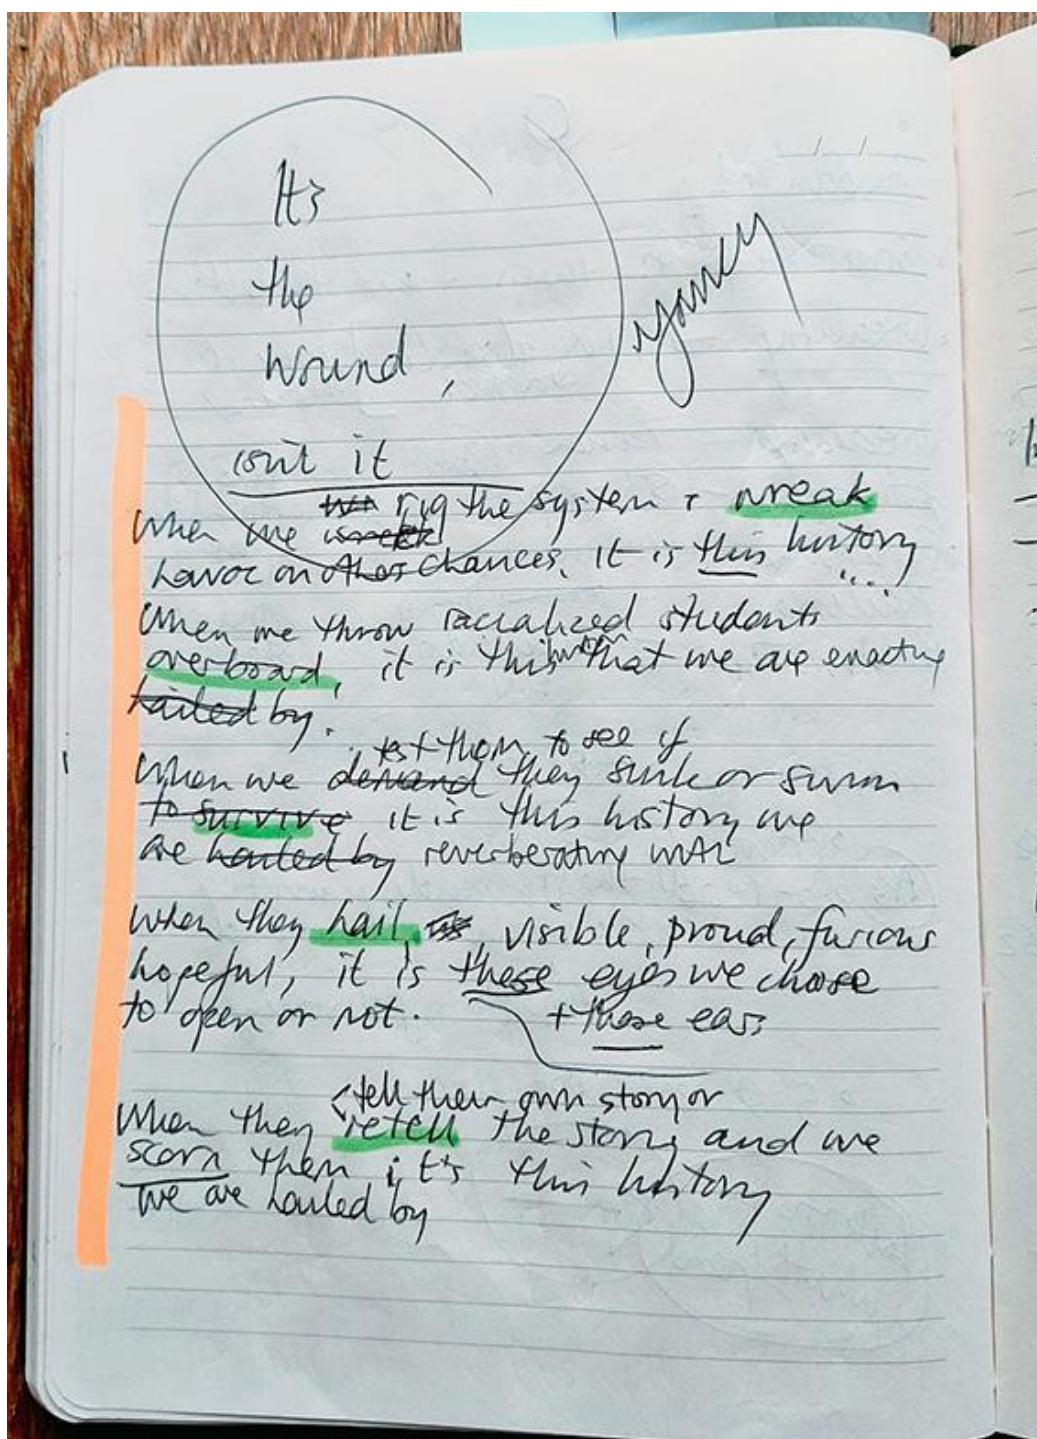 It's
the
wound,
isn't it
yancy
we rig the system + wreak
When we wreak
havoc on other chances, it is this history
...
When we throw racialized students
overboard, it is this history that we are enacting
hailed by.
test them to see if
When we demand they sink or swim
to survive it is this history we
are hailed by reverberating
When they hail, visible, proud, furious
hopeful, it is these eyes we choose
to open or not. + those ears
tell their own story or
When they retell the story and we
scorn them it's this history
we are hailed by